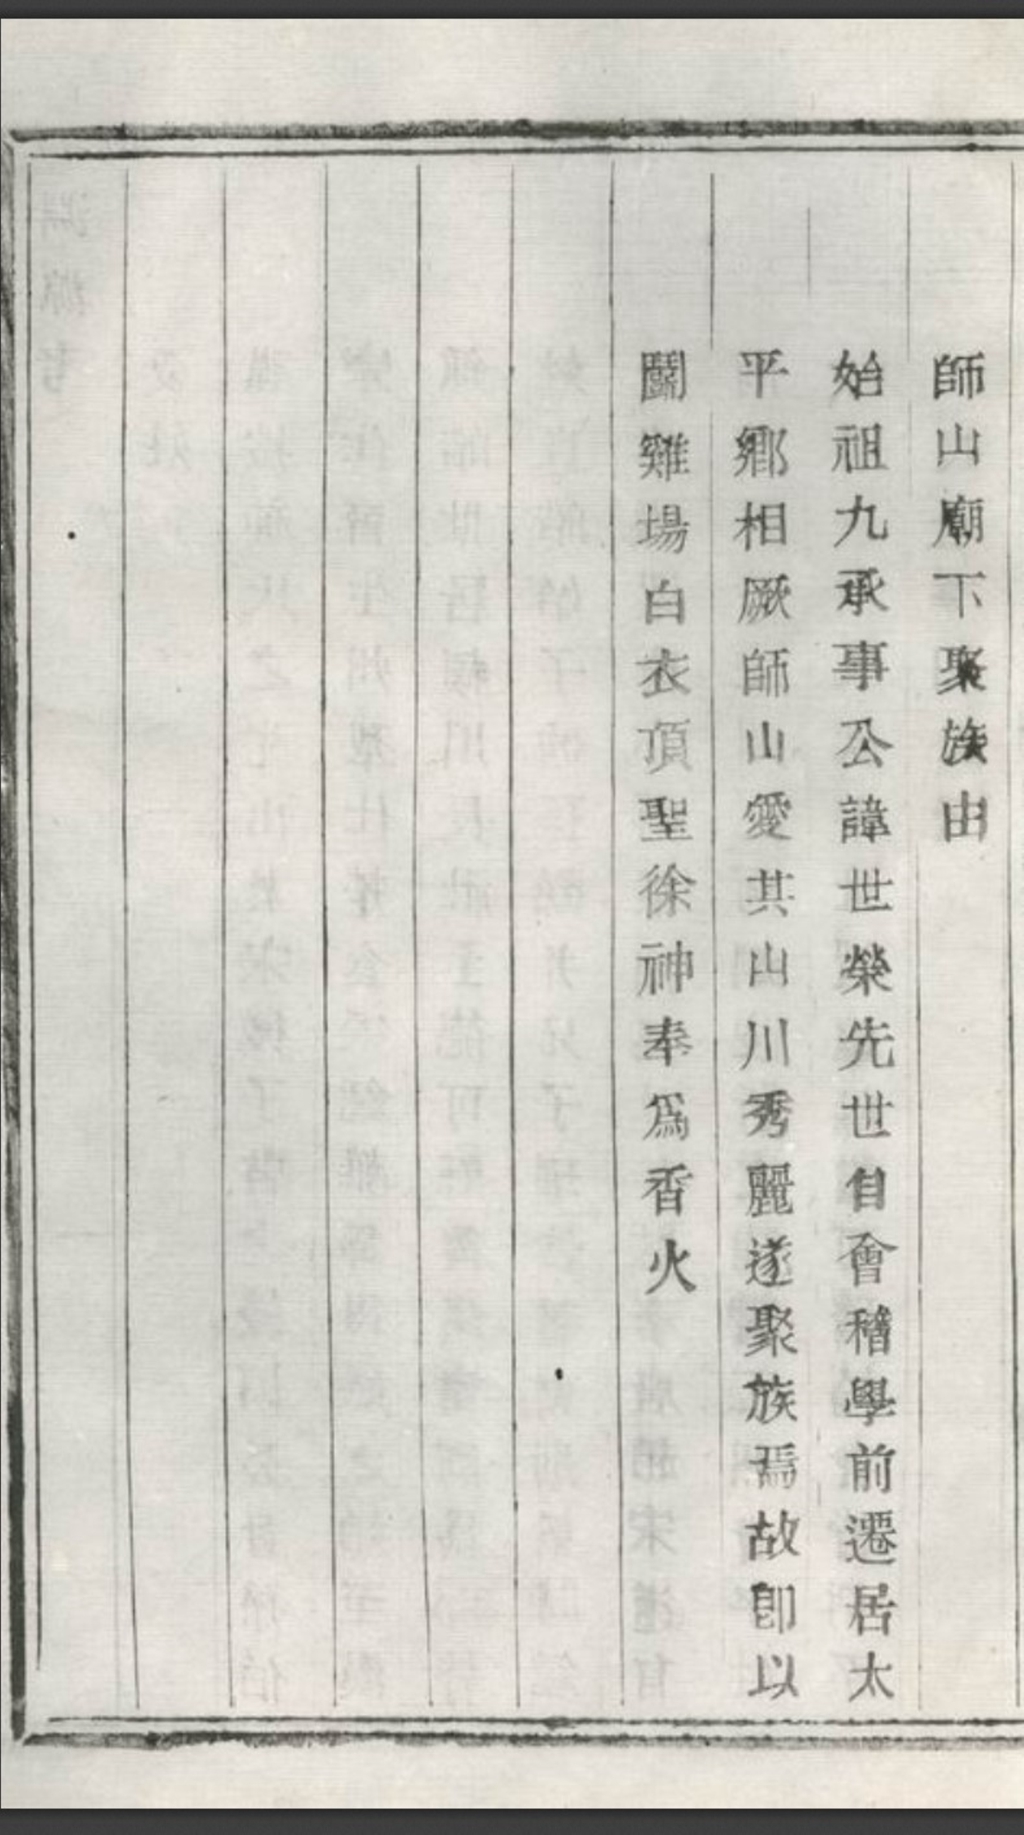 師山廟下聚族由
始祖九承事公諱世榮先世自會稽學前遷居太
平鄉相厥師山愛其山川秀麗遂聚族焉故即以
鬬雞場白衣頂聖徐神奉爲香火